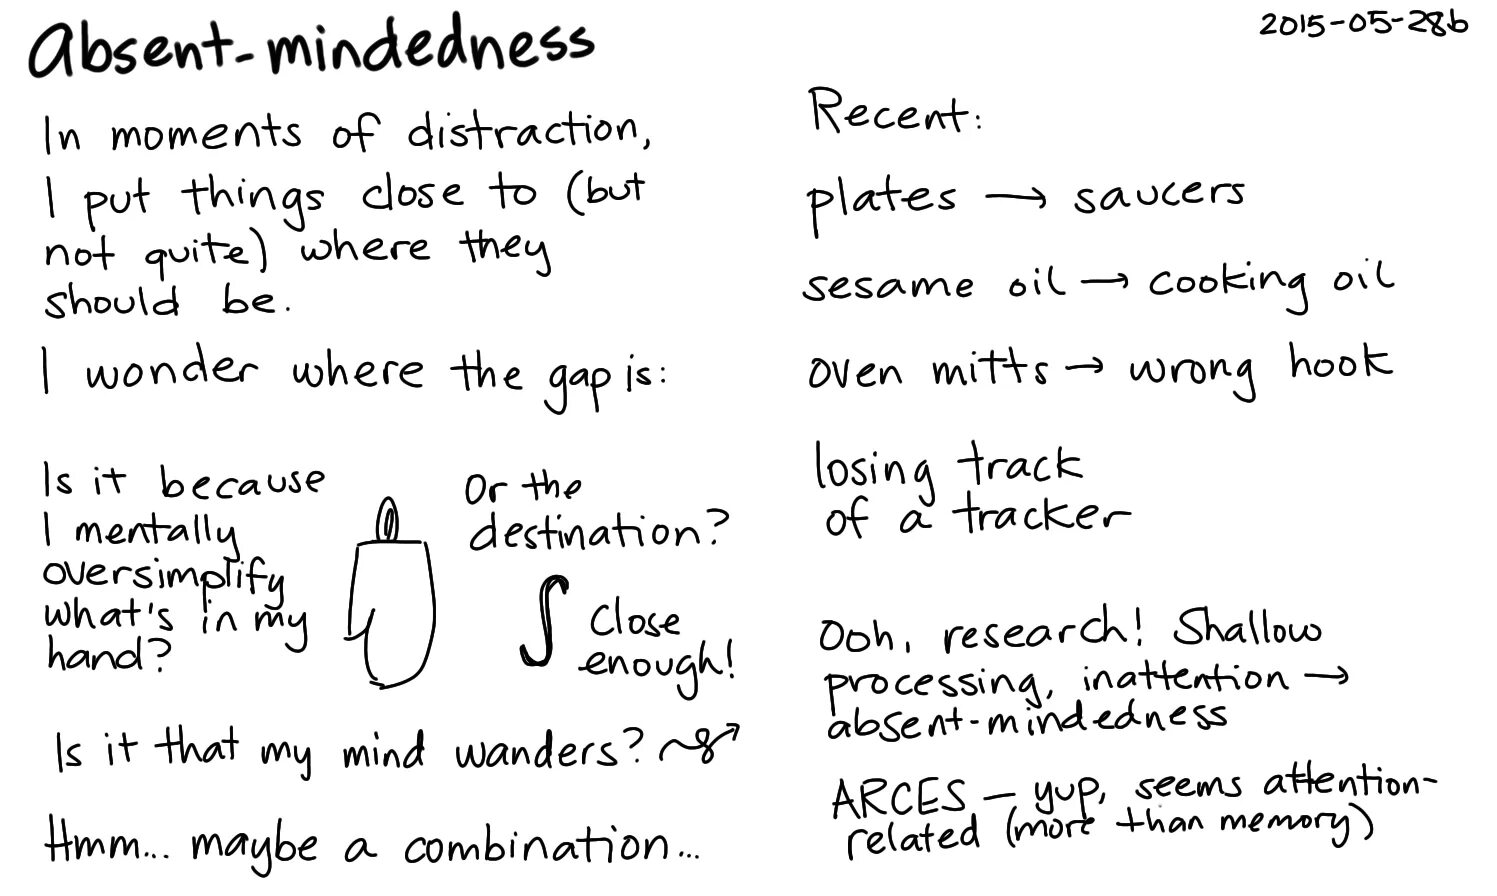 Absent-mindedness
2015-05-28b
In moments of distraction,
I put things close to (but
not quite) where they
should be.
I wonder where the gap is:
Is it because
I mentally
oversimplify
what's in my
hand?
Or the
destination?
Close
enough!
Is it that my mind wanders?
Hmm... maybe a combination...
Recent:
plates → saucers
sesame oil → cooking oil
oven mitts → wrong hook
losing track
of a tracker
Ooh, research! Shallow
processing, inattention →
absent-mindedness
ARCES – yup, seems attention-
related (more than memory)